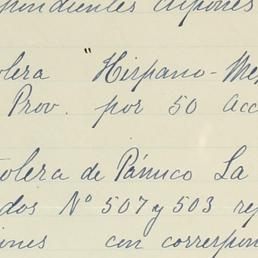 pondientes cupones
olera "Hispano-Me
Prov. por 50 Acc
olera de Pánuco La
dos Nº 507 y 503 re
iones con correspon